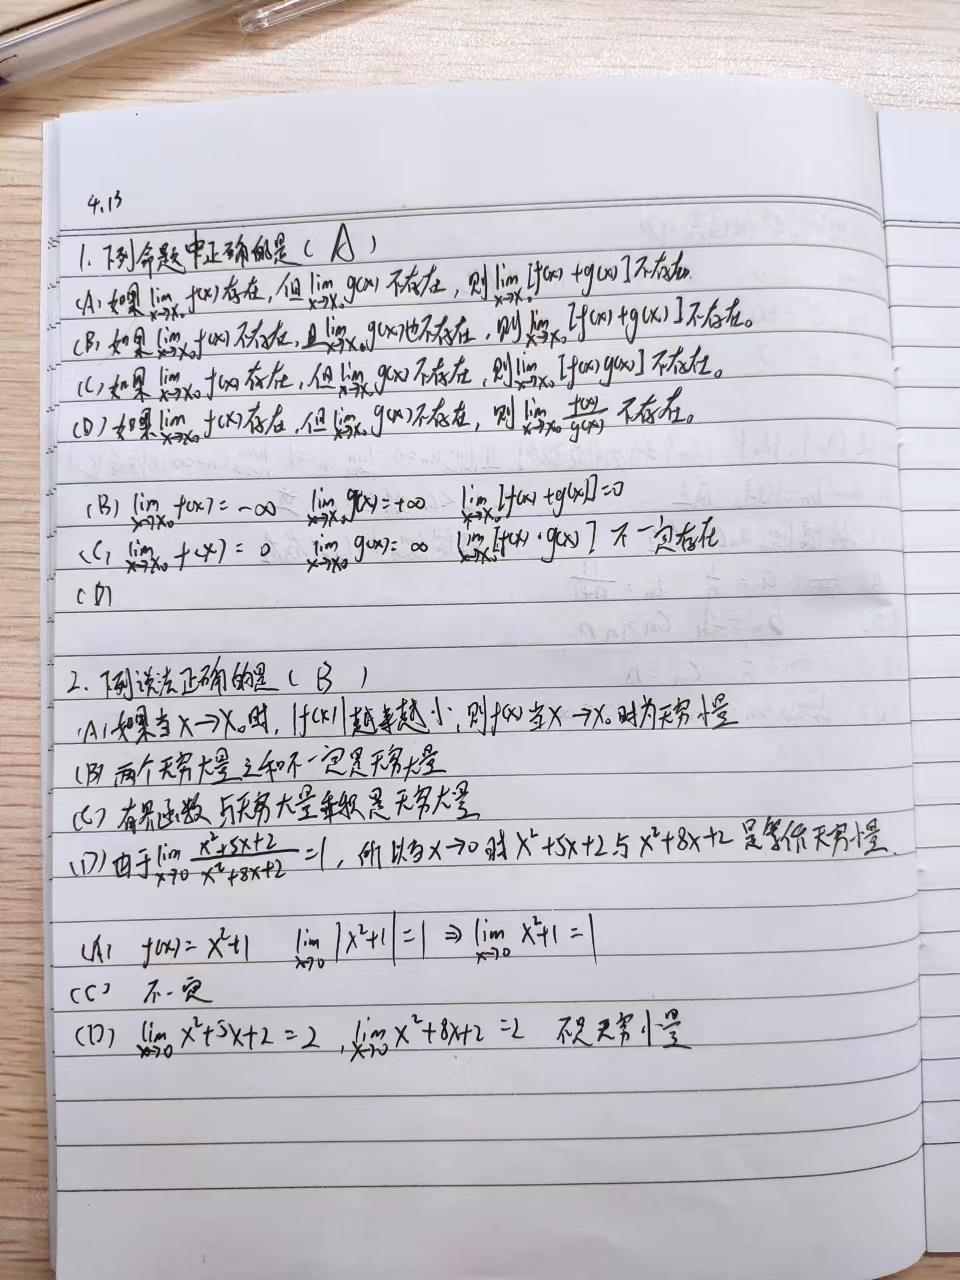 4.13
1. 下列命题中正确的是 ( A )
(A) 如果 lim x→x₀ f(x) 存在, 但 lim x→x₀ g(x) 不存在, 则 lim x→x₀ [f(x)+g(x)] 不存在.
(B) 如果 lim x→x₀ f(x) 不存在, 且 lim x→x₀ g(x) 也不存在, 则 lim x→x₀ [f(x)+g(x)] 不存在。
(C) 如果 lim x→x₀ f(x) 存在, 但 lim x→x₀ g(x) 不存在, 则 lim x→x₀ [f(x)g(x)] 不存在。
(D) 如果 lim x→x₀ f(x) 存在, 但 lim x→x₀ g(x) 不存在, 则 lim x→x₀ f(x)/g(x) 不存在。
(B) lim x→x₀ f(x) = -∞ lim x→x₀ g(x) = +∞ lim x→x₀ [f(x)+g(x)] = 0
(C) lim x→x₀ f(x) = 0 lim x→x₀ g(x) = ∞ lim x→x₀ [f(x)·g(x)] 不一定存在
(D)
2. 下列说法正确的是 ( B )
(A) 如果当 x→x₀ 时, |f(x)| 越来越小, 则 f(x) 当 x→x₀ 时为无穷小量
(B) 两个无穷大量之和不一定是无穷大量
(C) 有界函数与无穷大量乘积是无穷大量
(D) 由于 lim x→0 (x²+5x+2)/(x²+8x+2) = 1, 所以当 x→0 时 x²+5x+2 与 x²+8x+2 是等价无穷小量.
(A) f(x) = x²+1 lim x→0 |x²+1| = 1 ⇒ lim x→0 x²+1 = 1
(C) 不一定
(D) lim x→0 x²+5x+2 = 2, lim x→0 x²+8x+2 = 2 不是无穷小量